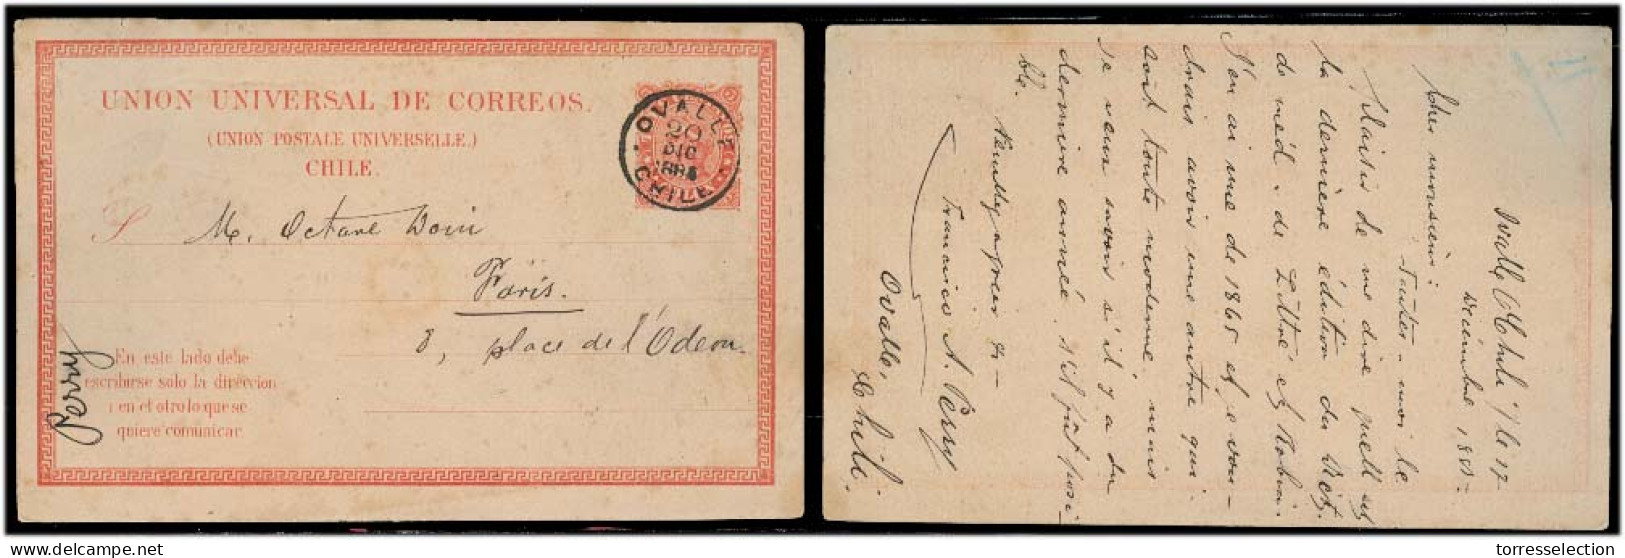 UNION UNIVERSAL DE CORREOS.
(UNION POSTALE UNIVERSELLE.)
CHILE.
OVALLE
20
DIC
CHILE
M. Octave Doin
Paris.
8, place de l'Odeon.
En este lado debe
escribirse solo la direccion
i en el otro lo que se
quiere comunicar.
Ovalle (Chile) le
Décembre, 188
Cher monsieur:
Faites-moi le
plaisir de me dire quelle est
la dernière édition du Dict.
de méd. de Littré et Robin
J'en ai une de 1865 et je vou-
drais avoir une autre qui
soit toute moderne, mais
je veux savoir s'il y a du
dernière année. s'il fût possi-
ble.
Veuillez agréer &-
Francisco A. Perry
Ovalle,
Chili.
delcampe.net
torresselection